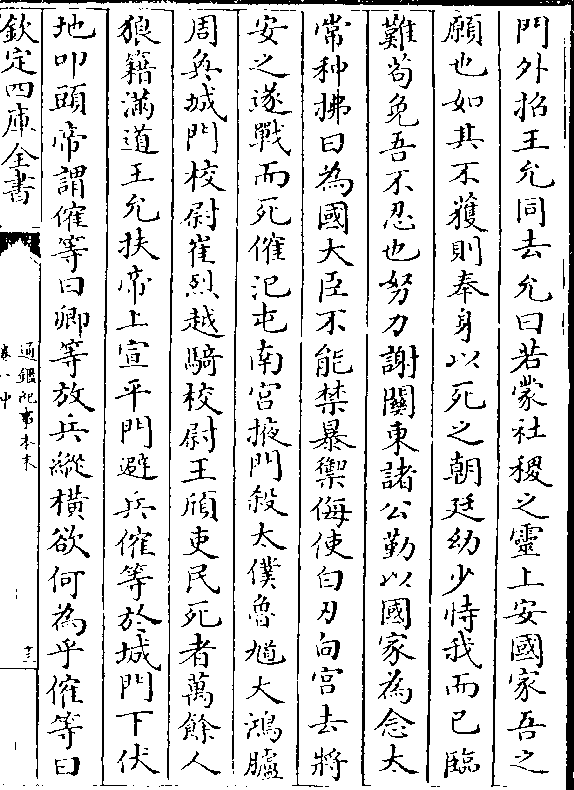 門外招王允同去允曰若蒙社稷之靈上安國家吾之
願也如其不獲則奉身以死之朝廷幼少恃我而已臨
難苟免吾不忍也努力謝關東諸公勤以國家為念太
常种拂曰為國大臣不能禁暴禦侮使白刃向宫去將
安之遂戰而死傕汜屯南宫掖門殺太僕魯馗大鴻臚
周奐城門校尉崔烈越騎校尉王頎吏民死者萬餘人
狼籍滿道王允扶帝上宣平門避兵傕等於城門下伏
地叩頭帝謂傕等曰卿等放兵縱横欲何為乎傕等曰
欽定四庫全書
通鑑紀事本末
卷八中